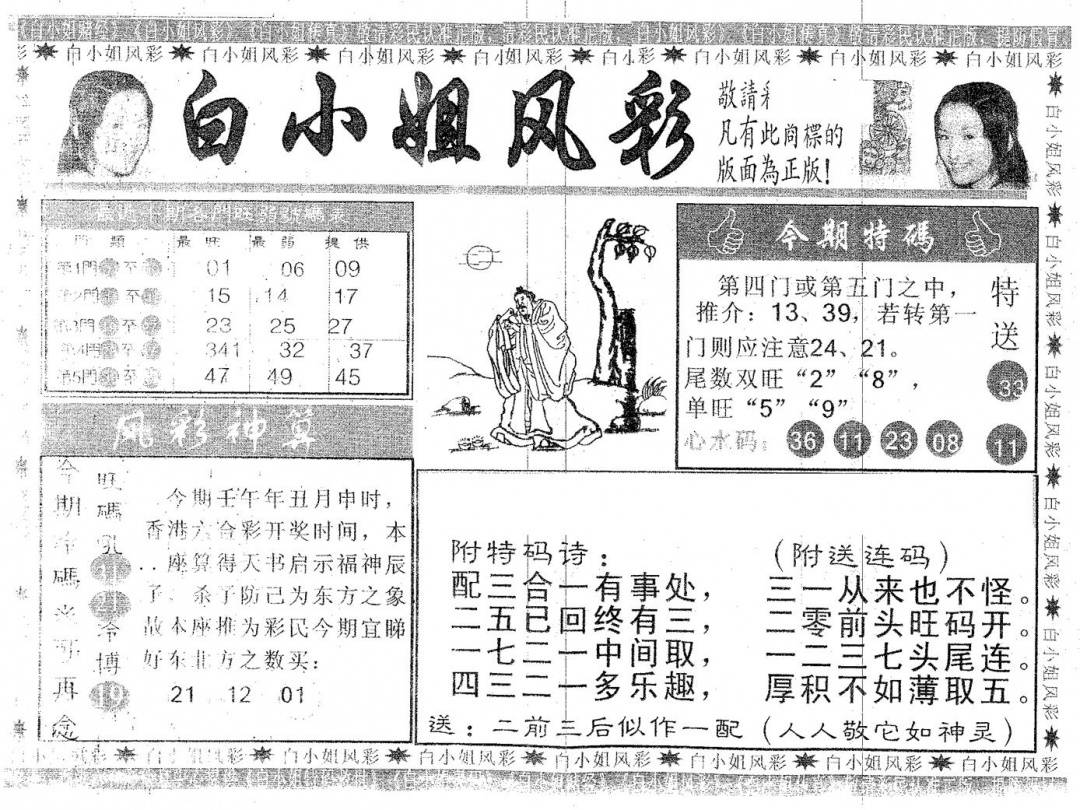 《白小姐风彩》
敬请彩民认准正版、
白小姐风彩 白小姐风彩 白小姐风彩 白小姐风彩 白小姐风彩 白小姐风彩 白小姐风彩
白小姐风彩
敬請彩
凡有此商標的
版面為正版!
門類 最旺 最弱 提供
第1門 至 01 06 09
第2門 至 15 14 17
第3門 至 23 25 27
第4門 至 341 32 37
第5門 至 47 49 45
今期特碼
第四门或第五门之中，
推介：13、39，若转第一
门则应注意24、21。
尾数双旺“2”“8”，
单旺“5”“9”
心水码： 36 11 23 08
特送
33
11
风彩神算
旺碼
21
冷
博
19
今期壬午年丑月申时，
香港六合彩开奖时间，本
座算得天书启示福神辰
子、杀子防己为东方之象
故本座推为彩民今期宜睇
好东北方之数买：
21 12 01
附特码诗：
配三合一有事处，
二五已回终有三，
一七二一中间取，
四三二一多乐趣，
（附送连码）
三一从来也不怪。
二零前头旺码开。
一二三七头尾连。
厚积不如薄取五。
送：二前三后似作一配（人人敬它如神灵）
白小姐风彩 白小姐风彩 白小姐风彩 白小姐风彩 白小姐风彩
白小姐风彩 白小姐风彩 白小姐风彩 白小姐风彩 白小姐风彩